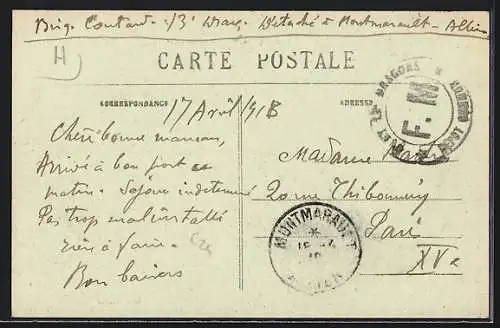 Brig. Coutard 13e Drag. Détaché à Montmarault - Allier
H
CARTE POSTALE
CORRESPONDANCE
ADRESSE
17 Avril 1918
Chère bonne maman,
Arrivé à bon port ce
matin. Séjour indeterminé
Pas trop mal installé
rien à faire.
Bons baisers
Madame
20 rue Thibouméry
Paris
XVe
DRAGONS *
F. M
MONTMARAULT
*
ALLIER